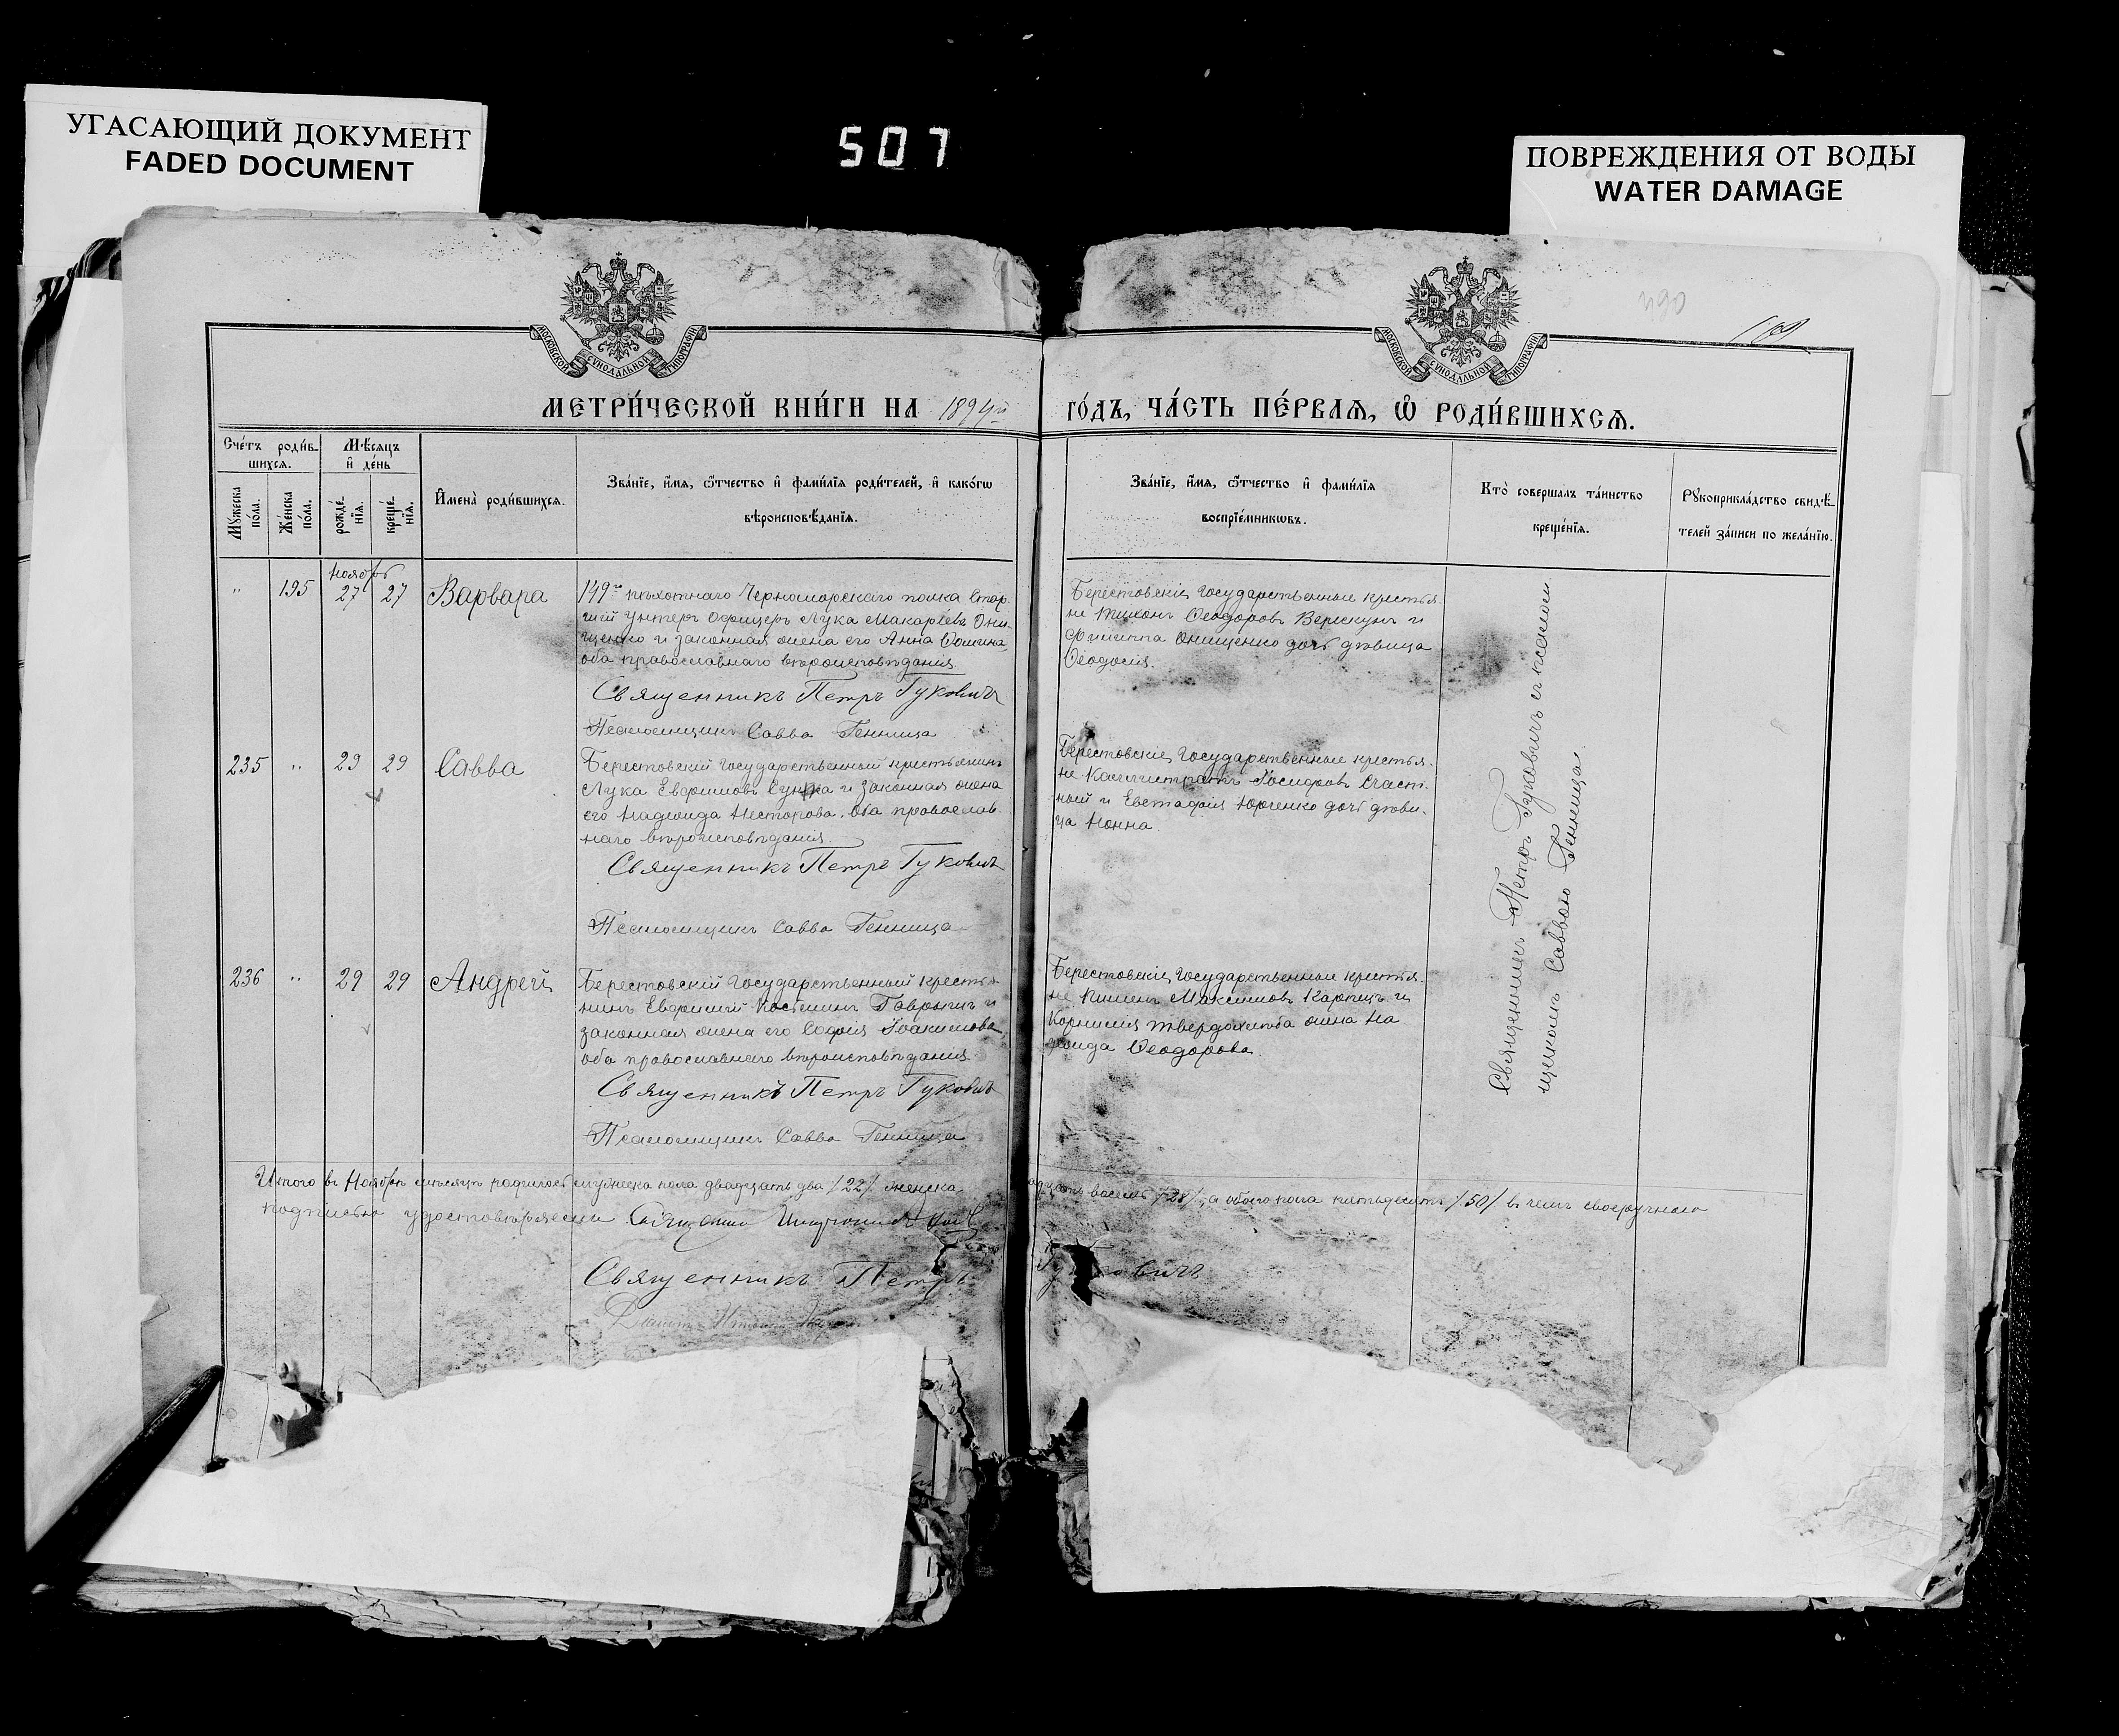 УГАСАЮЩИЙ ДОКУМЕНТ
FADED DOCUMENT
507
ПОВРЕЖДЕНИЯ ОТ ВОДЫ
WATER DAMAGE
МОСКОВСКОЙ СУНОДАЛЬНОЙ ТИПОГРАФІИ
МОСКОВСКОЙ СУНОДАЛЬНОЙ ТИПОГРАФІИ
490
МЕТРИ́ЧЕСКОЙ КНИ́ГИ НА 1894й ГО́ДЪ, ЧА́СТЬ ПЕ́РВАѦ, Ѿ РОДИ́ВШИХСѦ.
Сче́тъ роди́в-
шихсѧ.
Мꙋжеска по́ла.
Же́нска по́ла.
Мѣ́сѧцъ
и҆ де́нь
рожде́-нїѧ.
креще́-нїѧ.
И҆мена̀ роди́вшихсѧ.
Зва́нїе, и҆́мѧ, ѻ҆́тчество и҆ фами́лїѧ роди́телей, и҆ како́гѡ
вѣроисповѣ́данїѧ.
Зва́нїе, и҆́мѧ, ѻ҆́тчество и҆ фами́лїѧ
воспрїе́мникѡвъ.
Кто̀ соверша́лъ та́инство
креще́нїѧ.
Рꙋкоприкла́дство свидѣ́-
телей за́писи по жела́нїю.
Ноябрь
" 195 27 27 Варвара
149го пѣхотнаго Черноморскаго полка Стар-
шій Унтеръ Офицеръ Лука Макаріевъ Они-
щенко и законная жена его Анна Ѳомина,
оба православнаго вѣроисповѣданія
Священникъ Петръ Гуковичъ
Псаломщикъ Савва Генница
Берестовскіе Государственные крестья-
не Тихонъ Ѳеодоровъ Верескунъ и
Филиппа Онищенко дочь дѣвица
Ѳеодосія.
235 " 29 29 Савва
Берестовскій Государственный крестьянинъ
Лука Евфимовъ и законная жена
его Надежда Несторова, оба православ-
наго вѣроисповѣданія.
Священникъ Петръ Гуковичъ
Псаломщикъ Савва Генница
Берестовскіе Государственные крестья-
не Каллистратъ Іосифовъ Счаст-
ный и Евстафія Юрченко дочь дѣви-
ца Нонна.
236 " 29 29 Андрей
Берестовскій Государственный крестья-
нинъ Евфимій Косьминъ и
законная жена его Софія Іоакимова,
оба православнаго вѣроисповѣданія
Священникъ Петръ Гуковичъ
Псаломщикъ Савва Генница
Берестовскіе Государственные крестья-
не Пименъ Максимовъ Карпецъ и
Корнилія Твердохлѣба жена На-
дежда Ѳеодорова.
Священникъ Петръ Гуковичъ съ псалом
щикомъ Саввою Генница.
Итого въ Ноябрѣ мѣсяцѣ родилось мужеска пола двадцать два /22/ женска
восемь /28/, а обоего пола пятьдесятъ /50/ въ чемъ своеручною
подписью удостовѣряемъ
Священникъ Петръ Гуковичъ